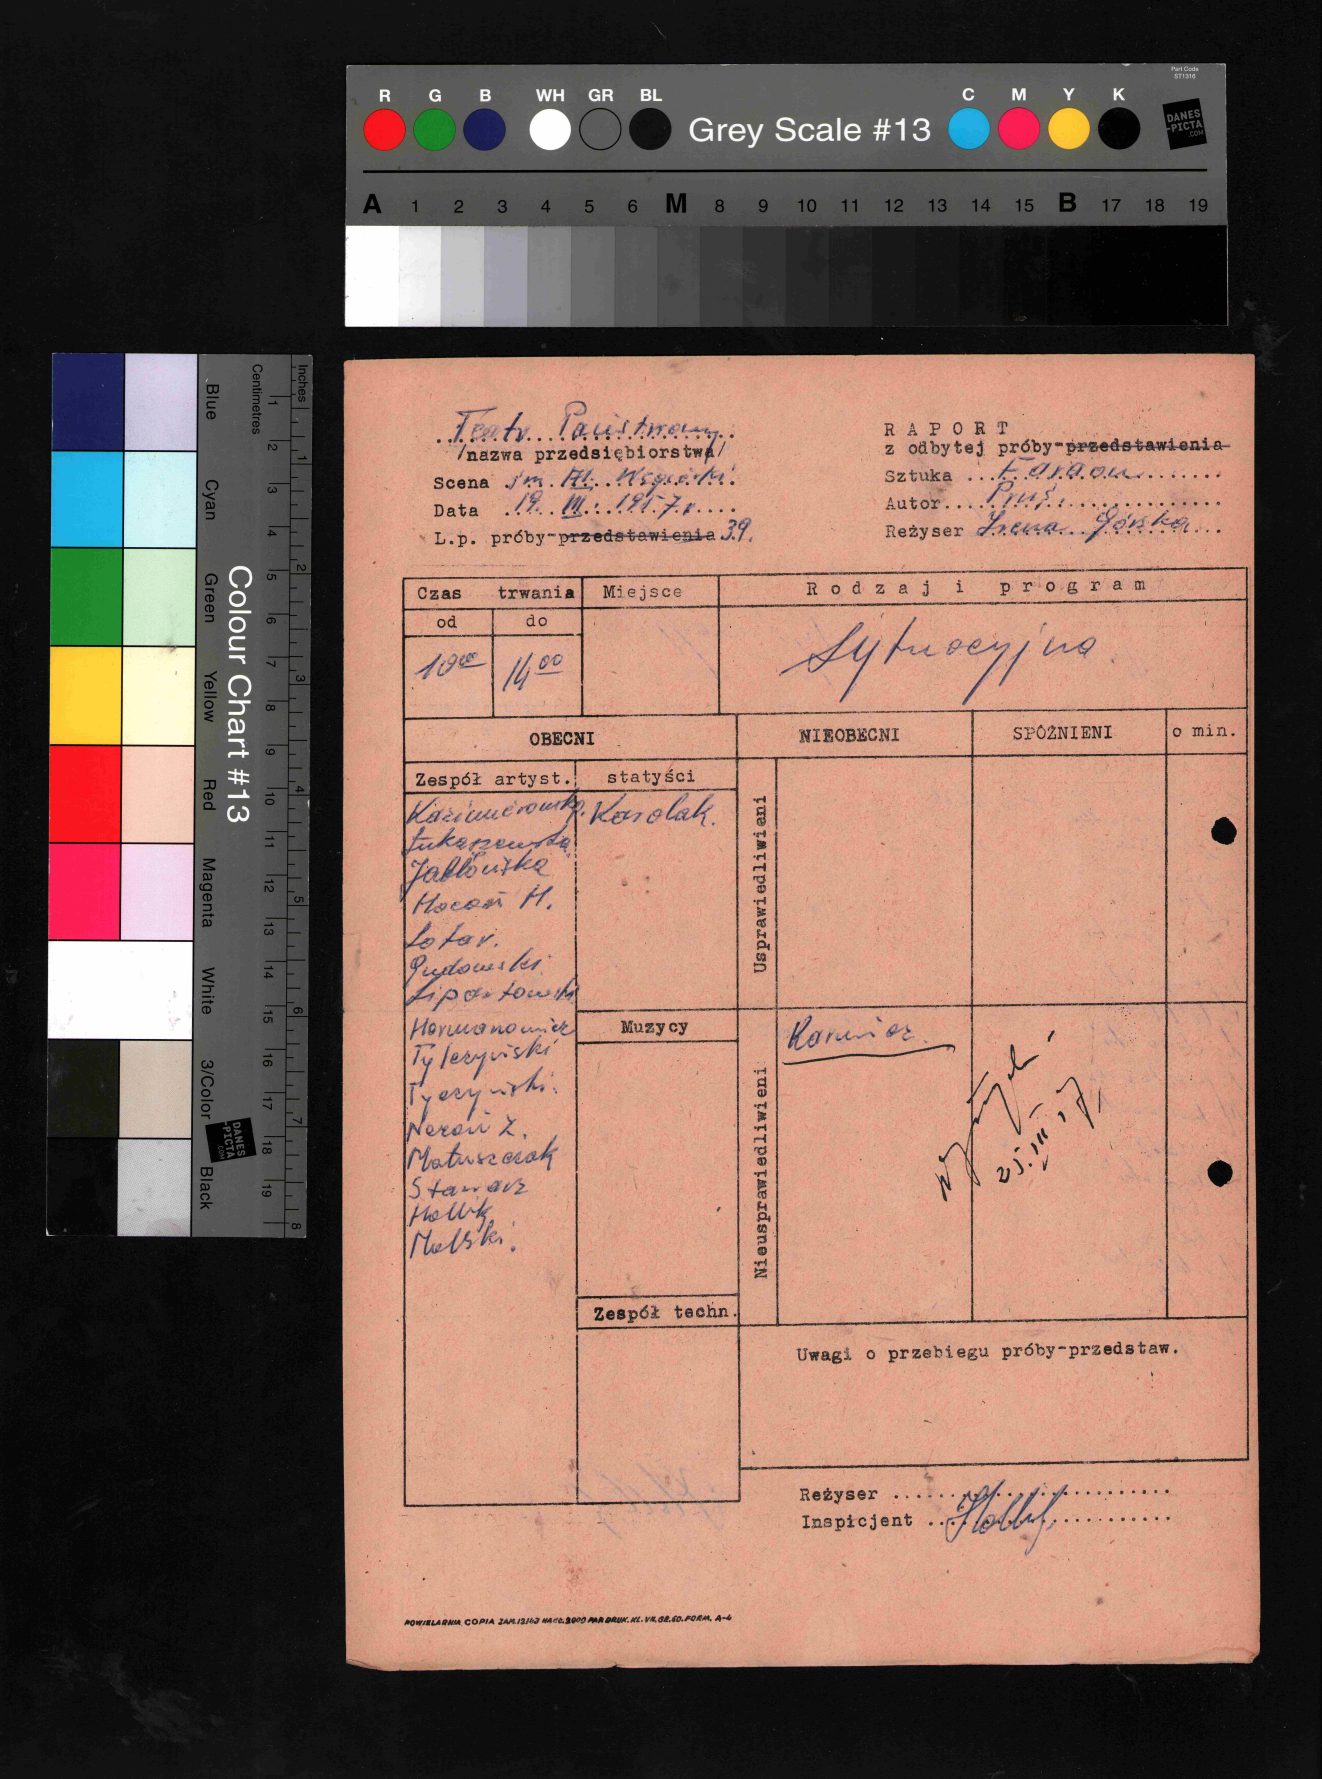 Part Code
ST1316
R G B WH GR BL
C M Y K
Grey Scale #13
DANES
-PICTA
.COM
A 1 2 3 4 5 6 M 8 9 10 11 12 13 14 15 B 17 18 19
Colour Chart #13
Blue Cyan Green Yellow Red Magenta White 3/Color Black
Centimetres
1 2 3 4 5 6 7 8 9 10 11 12 13 14 15 16 17 18 19
Inches
1 2 3 4 5 6 7 8
DANES
-PICTA
.COM
Teatr Państwowy
/nazwa przedsiębiorstwa/
Scena im. Al.
Data 19. III. 1957 r.
L.p. próby-przedstawienia 39.
RAPORT
z odbytej próby-przedstawienia
Sztuka Faraon
Autor Prus
Reżyser Irena Górska
Czas trwania Miejsce Rodzaj i program
od do
10 00 14 00 Sytuacyjna
OBECNI NIEOBECNI SPÓŹNIENI o min.
Zespół artyst. statyści
Kazimierowska. Karolak.
Łukaszewska
Jabłońska
Macoń M.
Lotar.
Gudowski
Lipartowski
Hermanowicz
Tylczyński
Tyczyński.
Matuszczak
Stawarz
Hollik
Malski.
Usprawiedliwieni
Muzycy
Nieusprawiedliwieni
25.III 57
Zespół techn.
Uwagi o przebiegu próby-przedstaw.
Reżyser
Inspicjent Hollik
POWIELARNIA COPIA
FORM. A-4